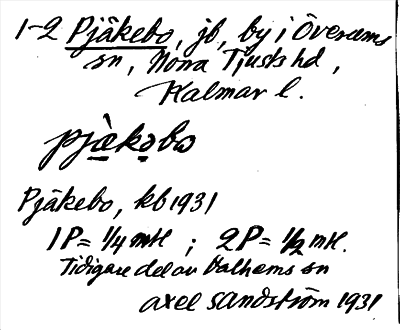 1-2 Pjäkebo, jb, by i Överums
sn, Norra Tjusts hd,
Kalmar l.
pjä̀kəbo
Pjäkebo, kb 1931
1P = 1/4 mtl ; 2P = 1/2 mtl.
Tidigare del av Dalhems sn
axel sandström 1931